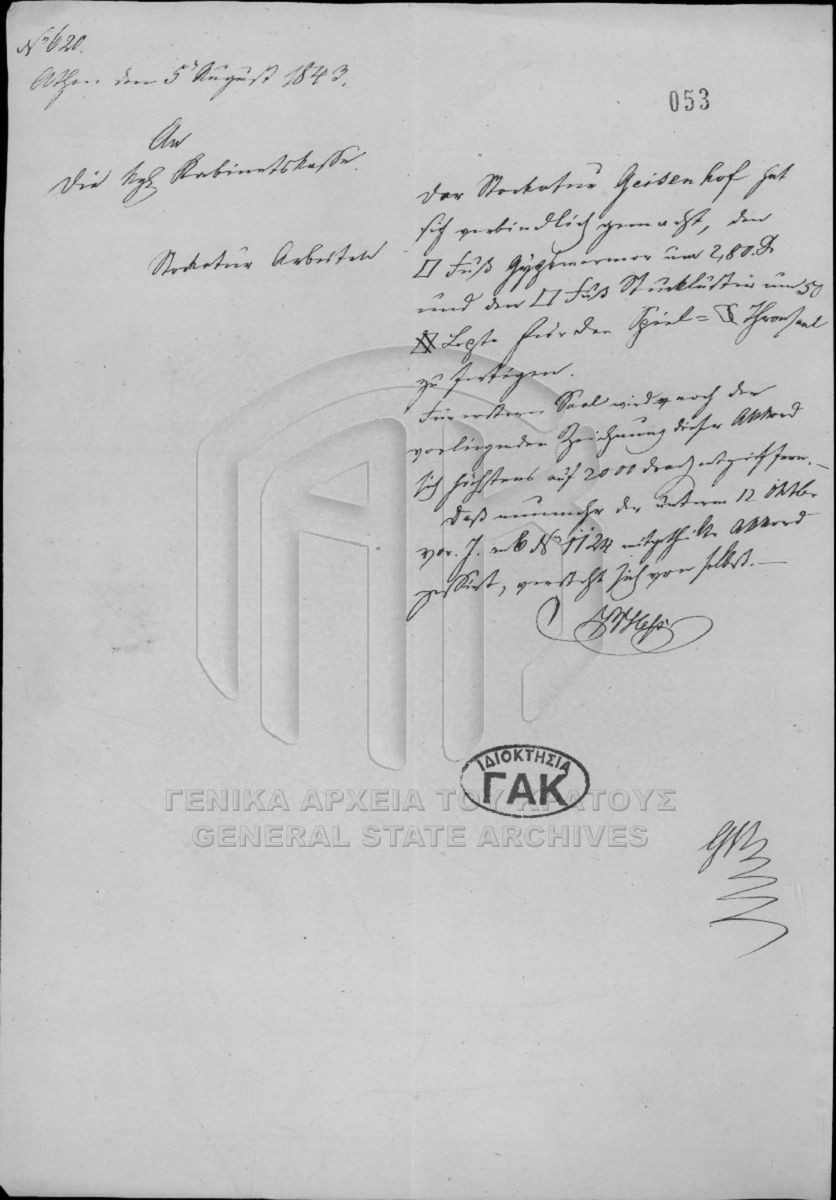 No 620.
Athen den 5t August 1843.
053
An
Die kgl Kabinetskasse.
Stockatur Arbeiten
Der Stockatur Geisenhof hat
sich verbindlich gemacht, den
□ Fuß Gypsmarmor um 2,80 D.
und den □ Fuß Stucklustro um 50
Lepta für den Spiel= & Thronsaal
zu fertigen.
Für erstern Saal wird nach der
vorliegenden Zeichnung dieser Akkord
sich höchstens auf 2000 drach entziffern.—
Daß nunmehr der unterm 12 Oktbr
vor. J. sub No 1124 mitgetheilte Akkord
cessirt, versteht sich von selbst.—
ΙΔΙΟΚΤΗΣΙΑ
ΓΑΚ
ΓΕΝΙΚΑ ΑΡΧΕΙΑ ΤΟΥ ΚΡΑΤΟΥΣ
GENERAL STATE ARCHIVES